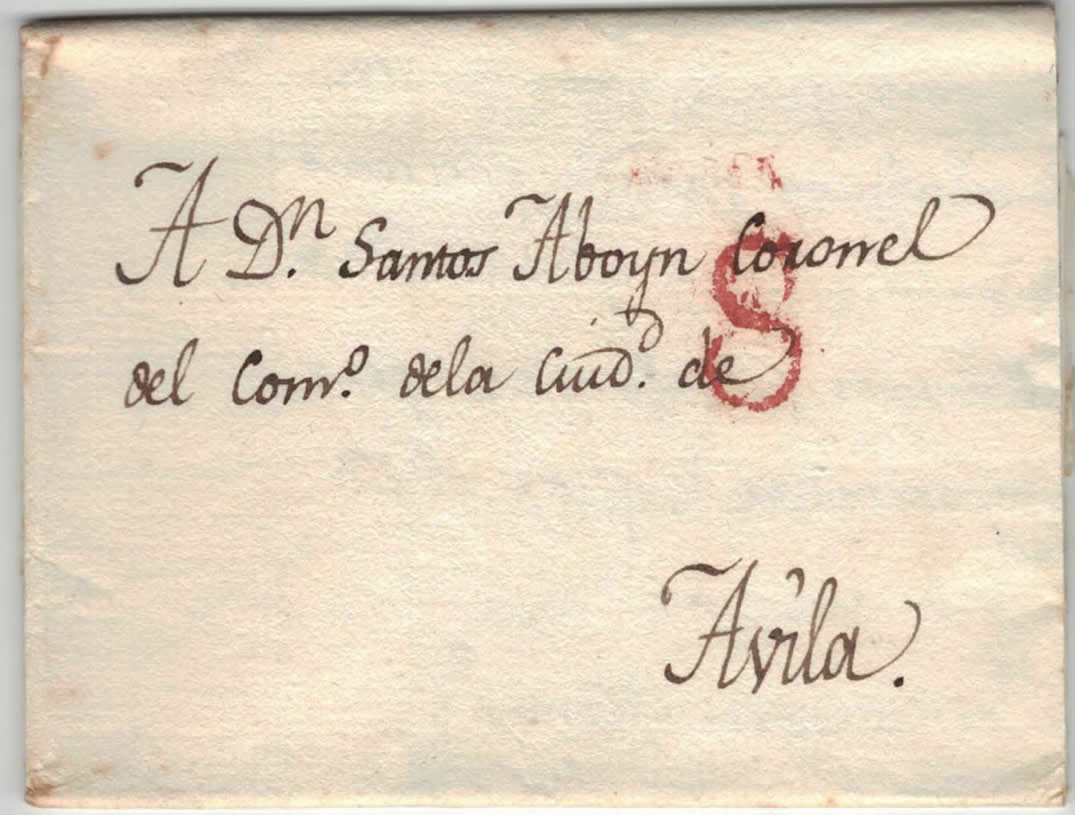 A D.ⁿ Santos Aboyn Coronel
8
del Com.º dela Ciud.ᵈ de
Avila.